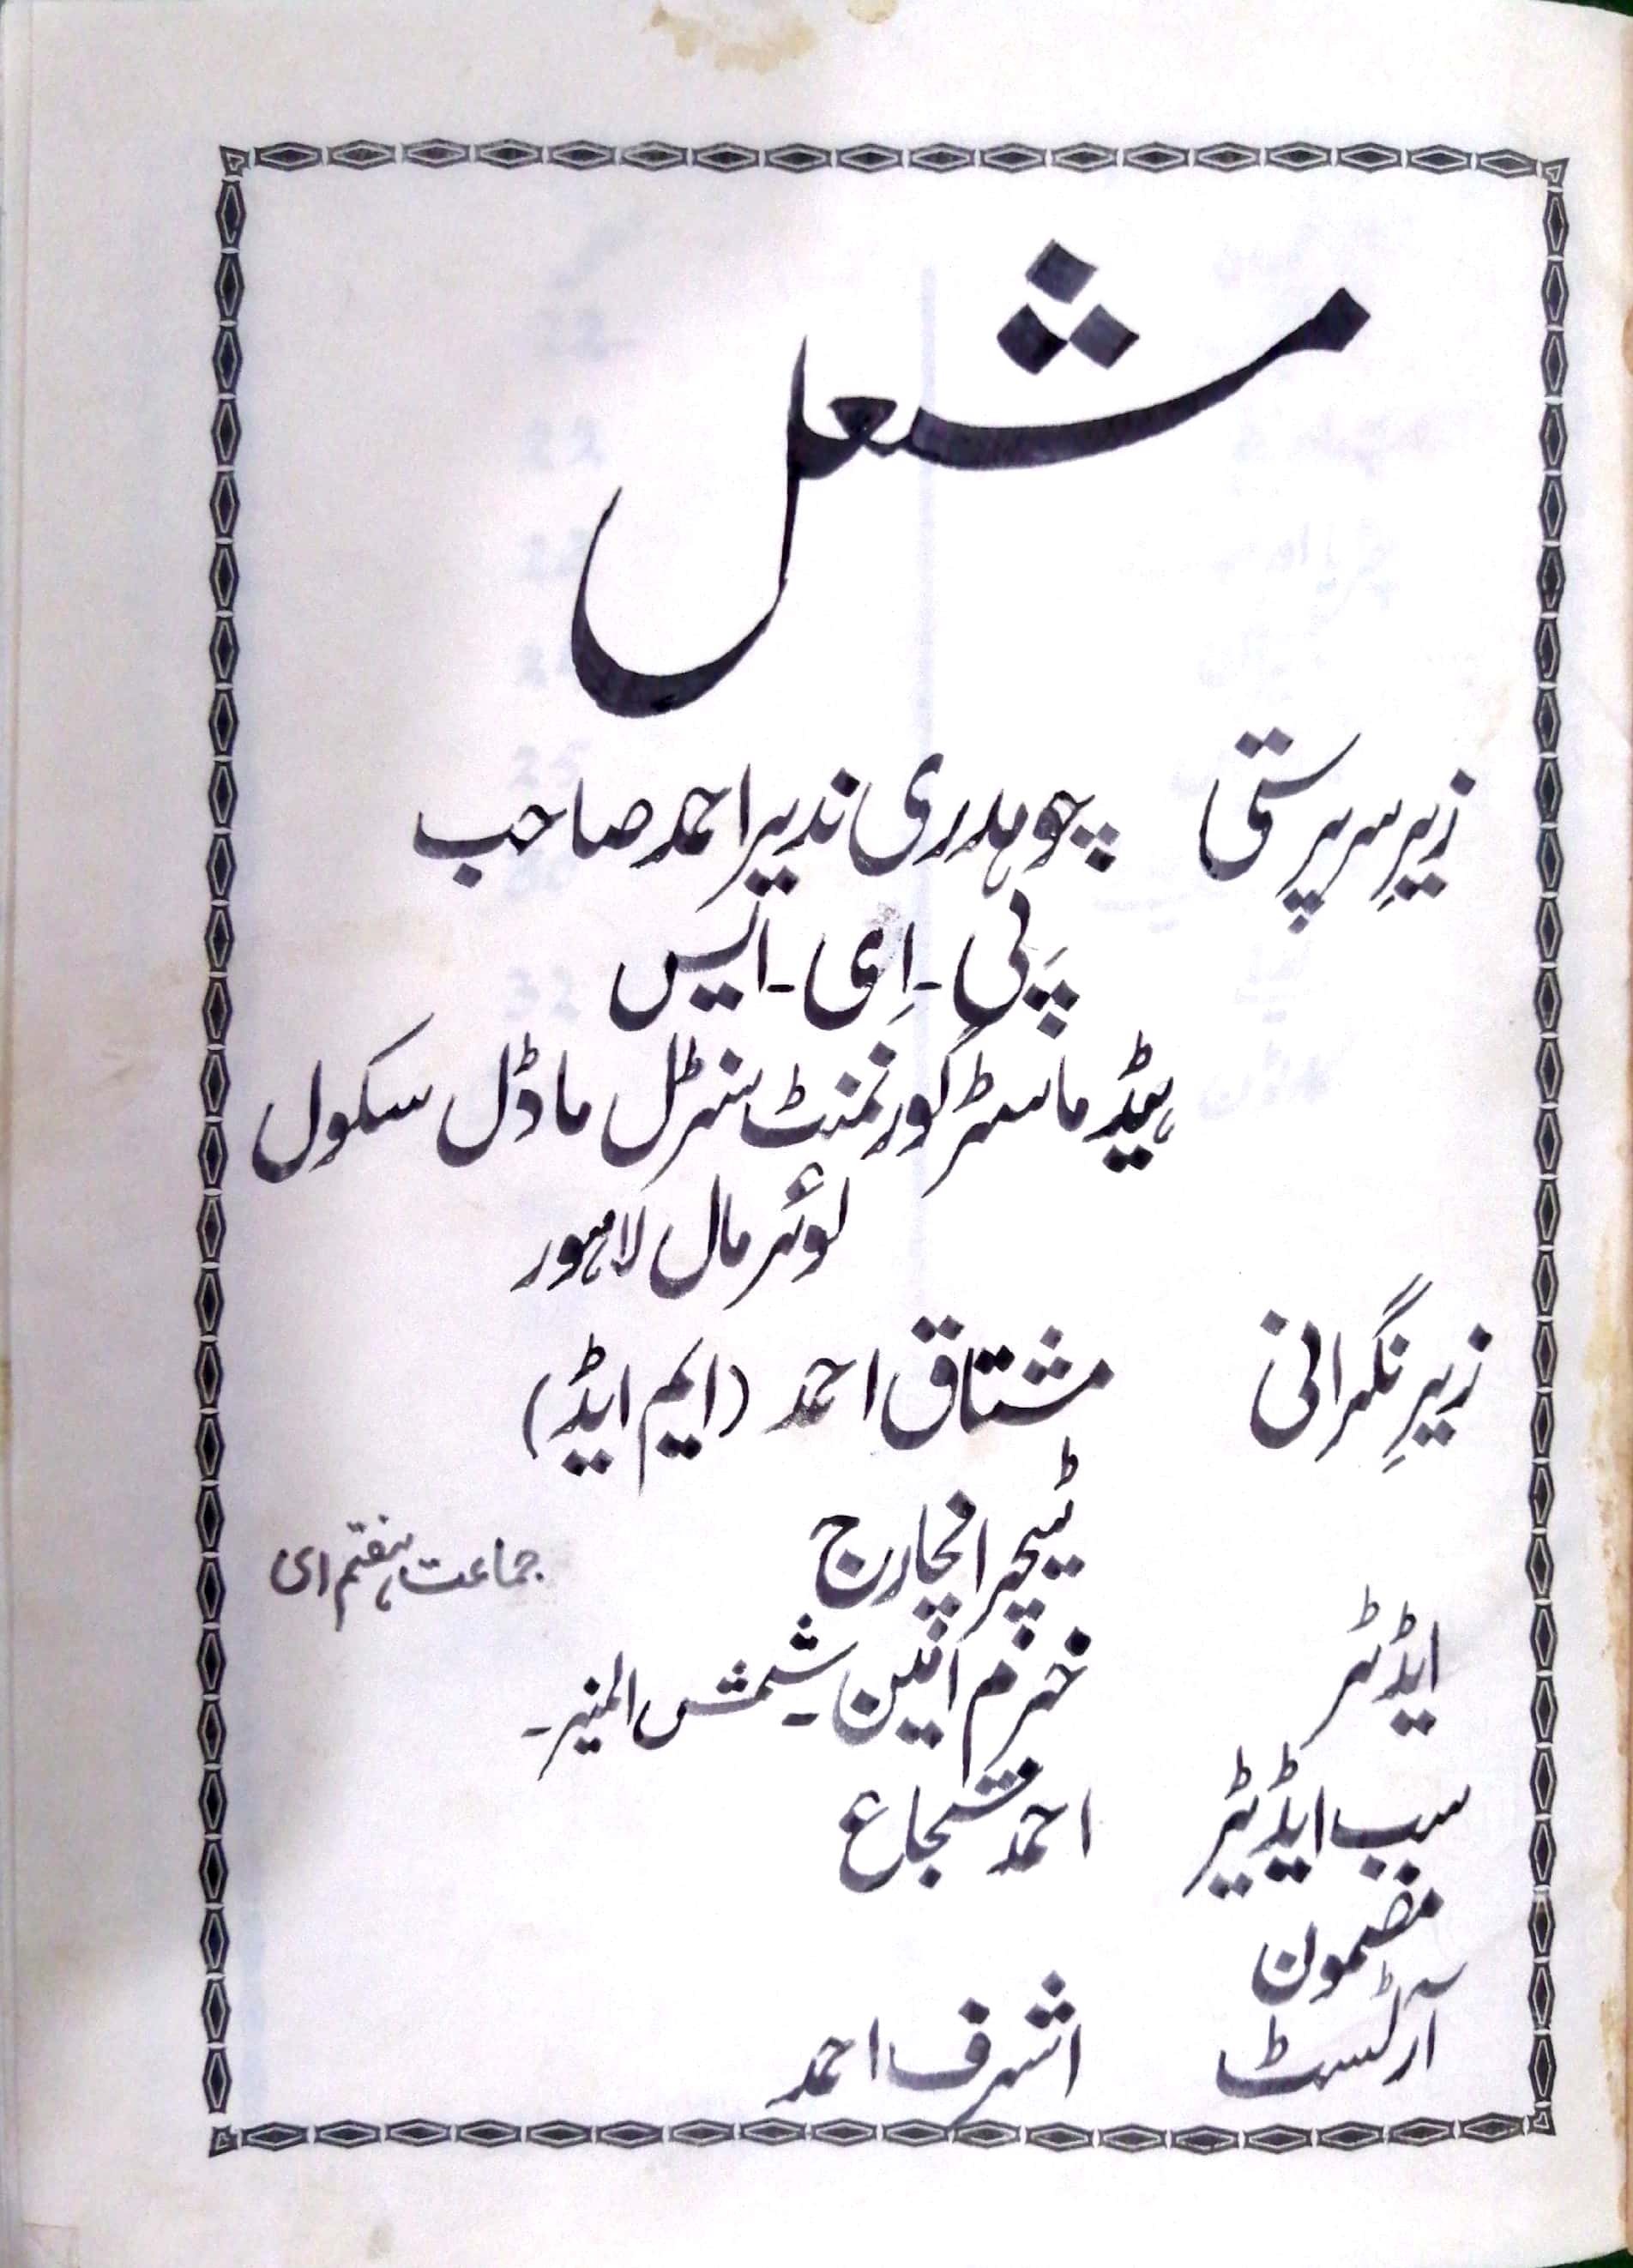 مشعل
زیرِ سرپرستی چوہدری نذیر احمد صاحب
پی ۔ اِی ۔ ایس
ہیڈ ماسٹر گورنمنٹ سنٹرل ماڈل سکول
لوئر مال لاہور
زیرِ نگرانی مشتاق احمد (ایم ایڈ)
ٹیچر انچارج
جماعت ہفتم ای
ایڈیٹر خرم امین ۔ شمش المنیر ۔
سب ایڈیٹر احمد شجاع
مضمون
آرٹسٹ اشرف احمد